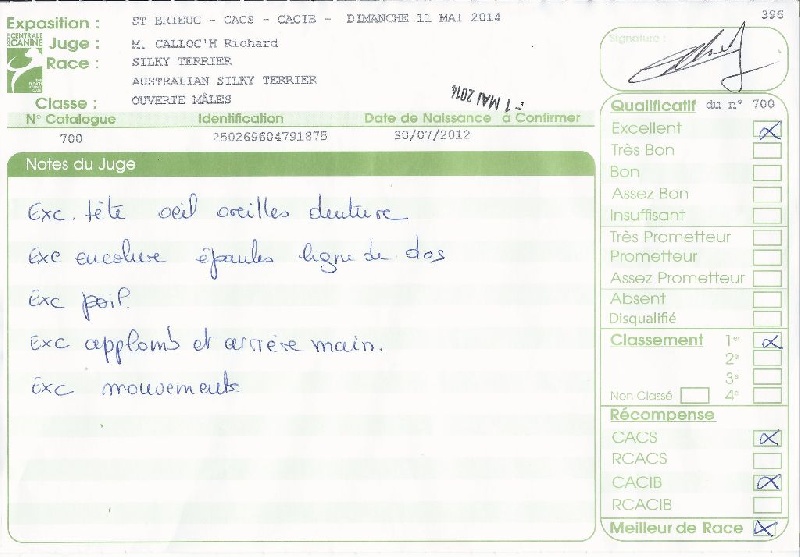 Exposition : ST BRIEUC - CACS - CACIB - DIMANCHE 11 MAI 2014
396
CENTRALE
CANINE
Juge : M. CALLOC'H Richard
Race : SILKY TERRIER
AUSTRALIAN SILKY TERRIER
Classe : OUVERTE MÂLES
1 MAI 2014
N° Catalogue Identification Date de Naissance à Confirmer
700 250269604791875 30/07/2012
Notes du Juge
Exc. tête oeil oreilles denture
Exc encolure épaules ligne de dos
Exc poil.
Exc applomb et arrière main.
Exc mouvements
Signature :
Qualificatif du n° 700
Excellent X
Très Bon
Bon
Assez Bon
Insuffisant
Très Prometteur
Prometteur
Assez Prometteur
Absent
Disqualifié
Classement 1er X
2e
3e
Non Classé 4e
Récompense
CACS X
RCACS
CACIB X
RCACIB
Meilleur de Race X